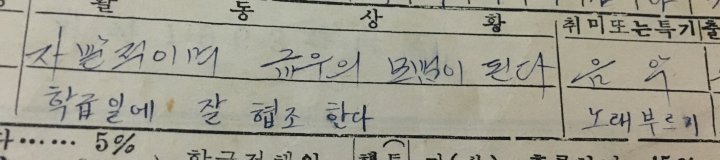 활 동 상 황 취미또는특기
자발적이며 급우의 모범이 된다 음 악
학급일에 잘 협조 한다 노래부르기
다...... 5%